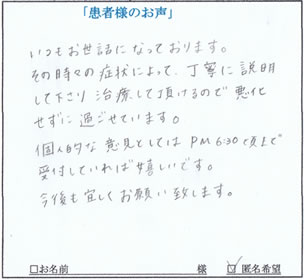 「患者様のお声」
いつもお世話になっております。
その時々の症状によって、丁寧に説明
して下さり 治療して頂けるので 悪化
せずに 過ごせています。
個人的な 意見としては PM 6:30で頃まで
受付していれば嬉しいです。
今後も宜しくお願い致します。
□お名前 様 ☑ 匿名希望